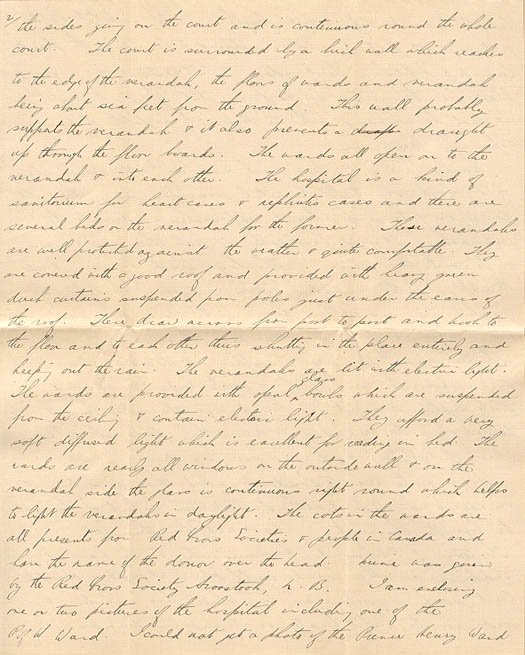 2/ the sides giving on the court and is continuous round the whole
court. The court is surrounded by a brick wall which reaches
to the edge of the verandah, the floors of wards and verandah
being about six feet from the ground. This wall probably
supports the verandah & it also prevents a draught
up through the floor boards. The wards all open on to the
verandah & into each other. The hospital is a kind of
sanitorium for heart cases & nephritis cases and there are
several beds on the verandah for the former. These verandahs
are well protected against the weather & quite comfortable. They
are covered with a good roof and provided with heavy green
duck curtains suspended from poles just under the eaves of
the roof. These draw across from post to post and hook to
the floor and to each other thus shutting in the place entirely and
keeping out the rain. The verandahs are lit with electric light.
The wards are provided with opal glass bowls which are suspended
from the ceiling & contain electric light. They afford a very
soft diffused light which is excellent for reading in bed The
wards are nearly all windows on the outside wall & on the
verandah side the glass is continuous right round which helps
to light the verandahs in daylight. The cots in the wards are
all presents from Red Cross Societies & people in Canada and
have the name of the donor over the head. Mine was given
by the Red Cross Society Aroostook, N. B. I am enclosing
one or two pictures of the hospital including one of the
P of W Ward. I could not get a photo of the Prince Henry Ward